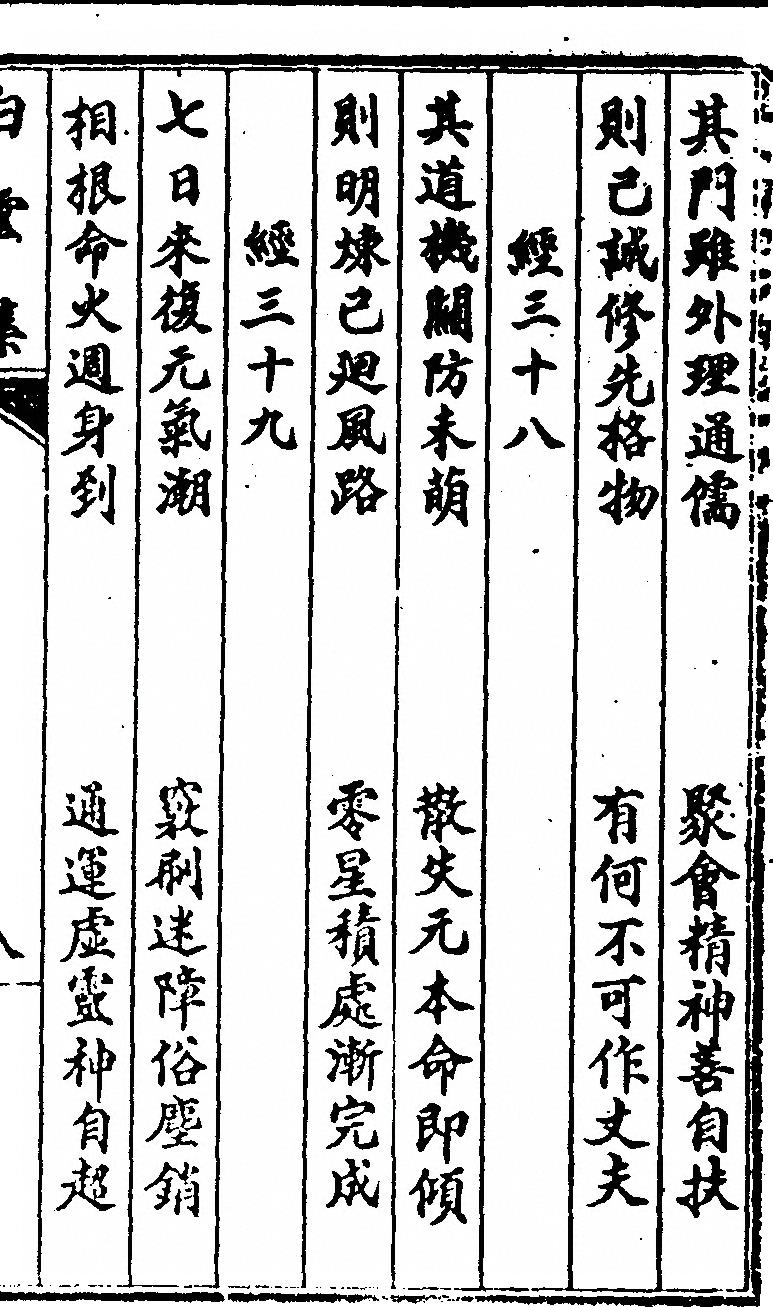 其門雖外理通儒　聚會精神善自扶
則己誠修先格物　有何不可作丈夫
經三十八
其道機關防未萌　散失元本命即傾
則明煉己廻風路　零星積處漸完成
經三十九
七日來復元氣潮　竅刷迷障俗塵銷
相根命火週身到　通運虛靈神自超
白雲集
八